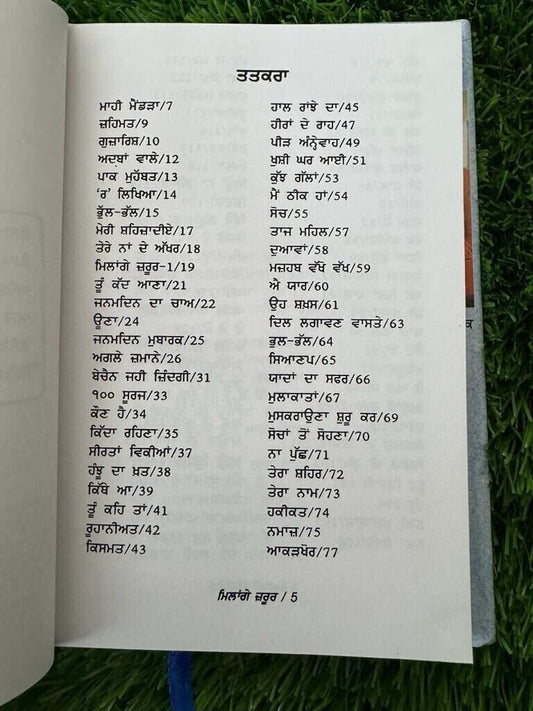 ਤਤਕਰਾ
ਮਾਹੀ ਮੈਂਡੜਾ/7
ਜ਼ਹਿਮਤ/9
ਗੁਜ਼ਾਰਿਸ਼/10
ਅਦਬਾਂ ਵਾਲੇ/12
ਪਾਕ ਮੁਹੱਬਤ/13
‘ਰ’ ਲਿਖਿਆ/14
ਭੁੱਲ-ਭੱਲ/15
ਮੇਰੀ ਸ਼ਹਿਜ਼ਾਦੀਏ/17
ਤੇਰੇ ਨਾਂ ਦੇ ਅੱਖਰ/18
ਮਿਲਾਂਗੇ ਜ਼ਰੂਰ-1/19
ਤੂੰ ਕੱਦ ਆਣਾ/21
ਜਨਮਦਿਨ ਦਾ ਚਾਅ/22
ਊਣਾ/24
ਜਨਮਦਿਨ ਮੁਬਾਰਕ/25
ਅਗਲੇ ਜ਼ਮਾਨੇ/26
ਬੇਚੈਨ ਜਹੀ ਜ਼ਿੰਦਗੀ/31
੧੦੦ ਸੂਰਜ/33
ਕੌਣ ਹੈ/34
ਕਿੱਦਾ ਰਹਿਣਾ/35
ਸੀਰਤਾਂ ਵਿਕੀਆਂ/37
ਹੰਝੂ ਦਾ ਖ਼ਤ/38
ਕਿੱਥੇ ਆ/39
ਤੂੰ ਕਹਿ ਤਾਂ/41
ਰੂਹਾਨੀਅਤ/42
ਕਿਸਮਤ/43
ਹਾਲ ਰਾਂਝੇ ਦਾ/45
ਹੀਰਾਂ ਦੇ ਰਾਹ/47
ਪੀੜ ਅੰਨ੍ਹੇਵਾਹ/49
ਖੁਸ਼ੀ ਘਰ ਆਈ/51
ਕੁੱਝ ਗੱਲਾਂ/53
ਮੈਂ ਠੀਕ ਹਾਂ/54
ਸੋਚ/55
ਤਾਜ ਮਹਿਲ/57
ਦੁਆਵਾਂ/58
ਮਜ਼ਹਬ ਵੱਖੋ ਵੱਖ/59
ਐ ਯਾਰ/60
ਉਹ ਸ਼ਖ਼ਸ/61
ਦਿਲ ਲਗਾਵਣ ਵਾਸਤੇ/63
ਭੁਲ-ਭੱਲ/64
ਸਿਆਣਪ/65
ਯਾਦਾਂ ਦਾ ਸਫਰ/66
ਮੁਲਾਕਾਤਾਂ/67
ਮੁਸਕਰਾਉਣਾ ਸ਼ੁਰੂ ਕਰ/69
ਸੋਚਾਂ ਤੋਂ ਸੋਹਣਾ/70
ਨਾ ਪੁੱਛ/71
ਤੇਰਾ ਸ਼ਹਿਰ/72
ਤੇਰਾ ਨਾਮ/73
ਹਕੀਕਤ/74
ਨਮਾਜ਼/75
ਆਕੜਖੋਰ/77
ਮਿਲਾਂਗੇ ਜ਼ਰੂਰ / 5